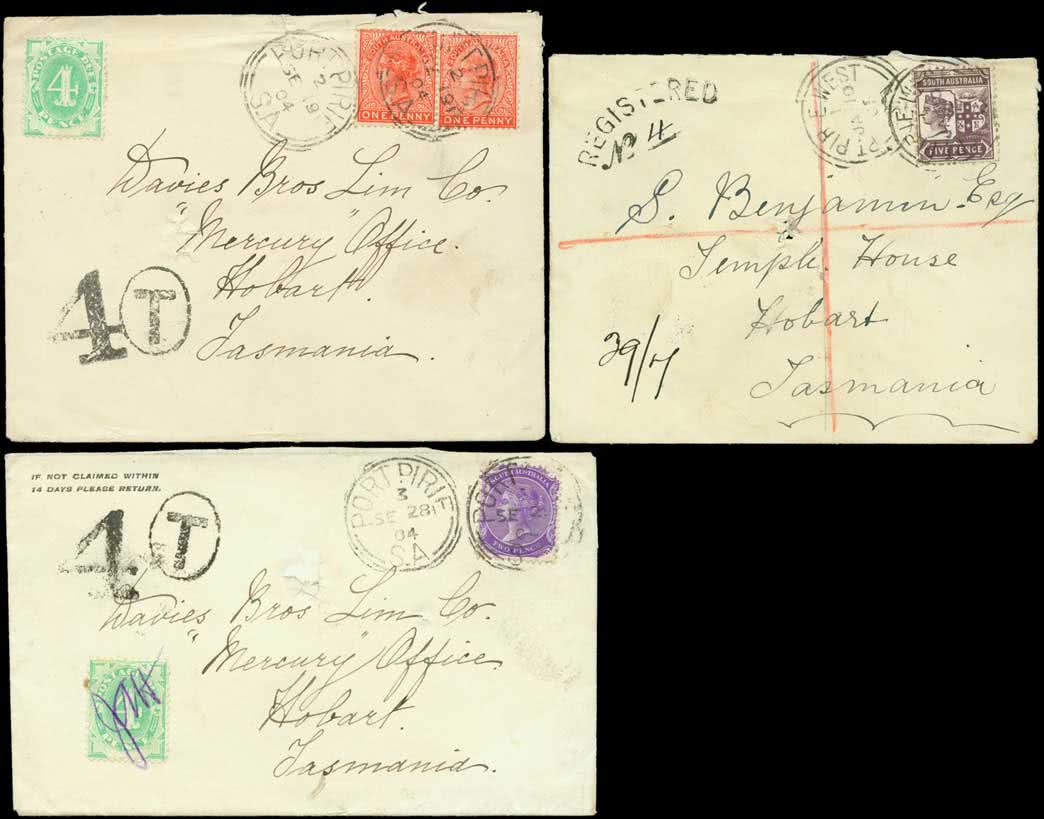 POSTAGE DUE
4
PENCE
PORT PIRIE
2 19
SE
04
S.A
SOUTH AUSTRALIA
ONE PENNY
ONE PENNY
Davies Bros Lim Co.
"Mercury" Office.
Hobart.
Tasmania.
4 T
REGISTERED
No 4
PORT PIRIE WEST
SOUTH AUSTRALIA
FIVE PENCE
S. Benjamin Esq
Temple House
Hobart
Tasmania
39/7
IF NOT CLAIMED WITHIN
14 DAYS PLEASE RETURN.
4 T
PORT PIRIE
3
SE 28
04
S.A
PORT
SE 2
SOUTH AUSTRALIA
TWO PENCE
Davies Bros Lim Co.
"Mercury" Office
Hobart.
Tasmania.
POSTAGE DUE
4